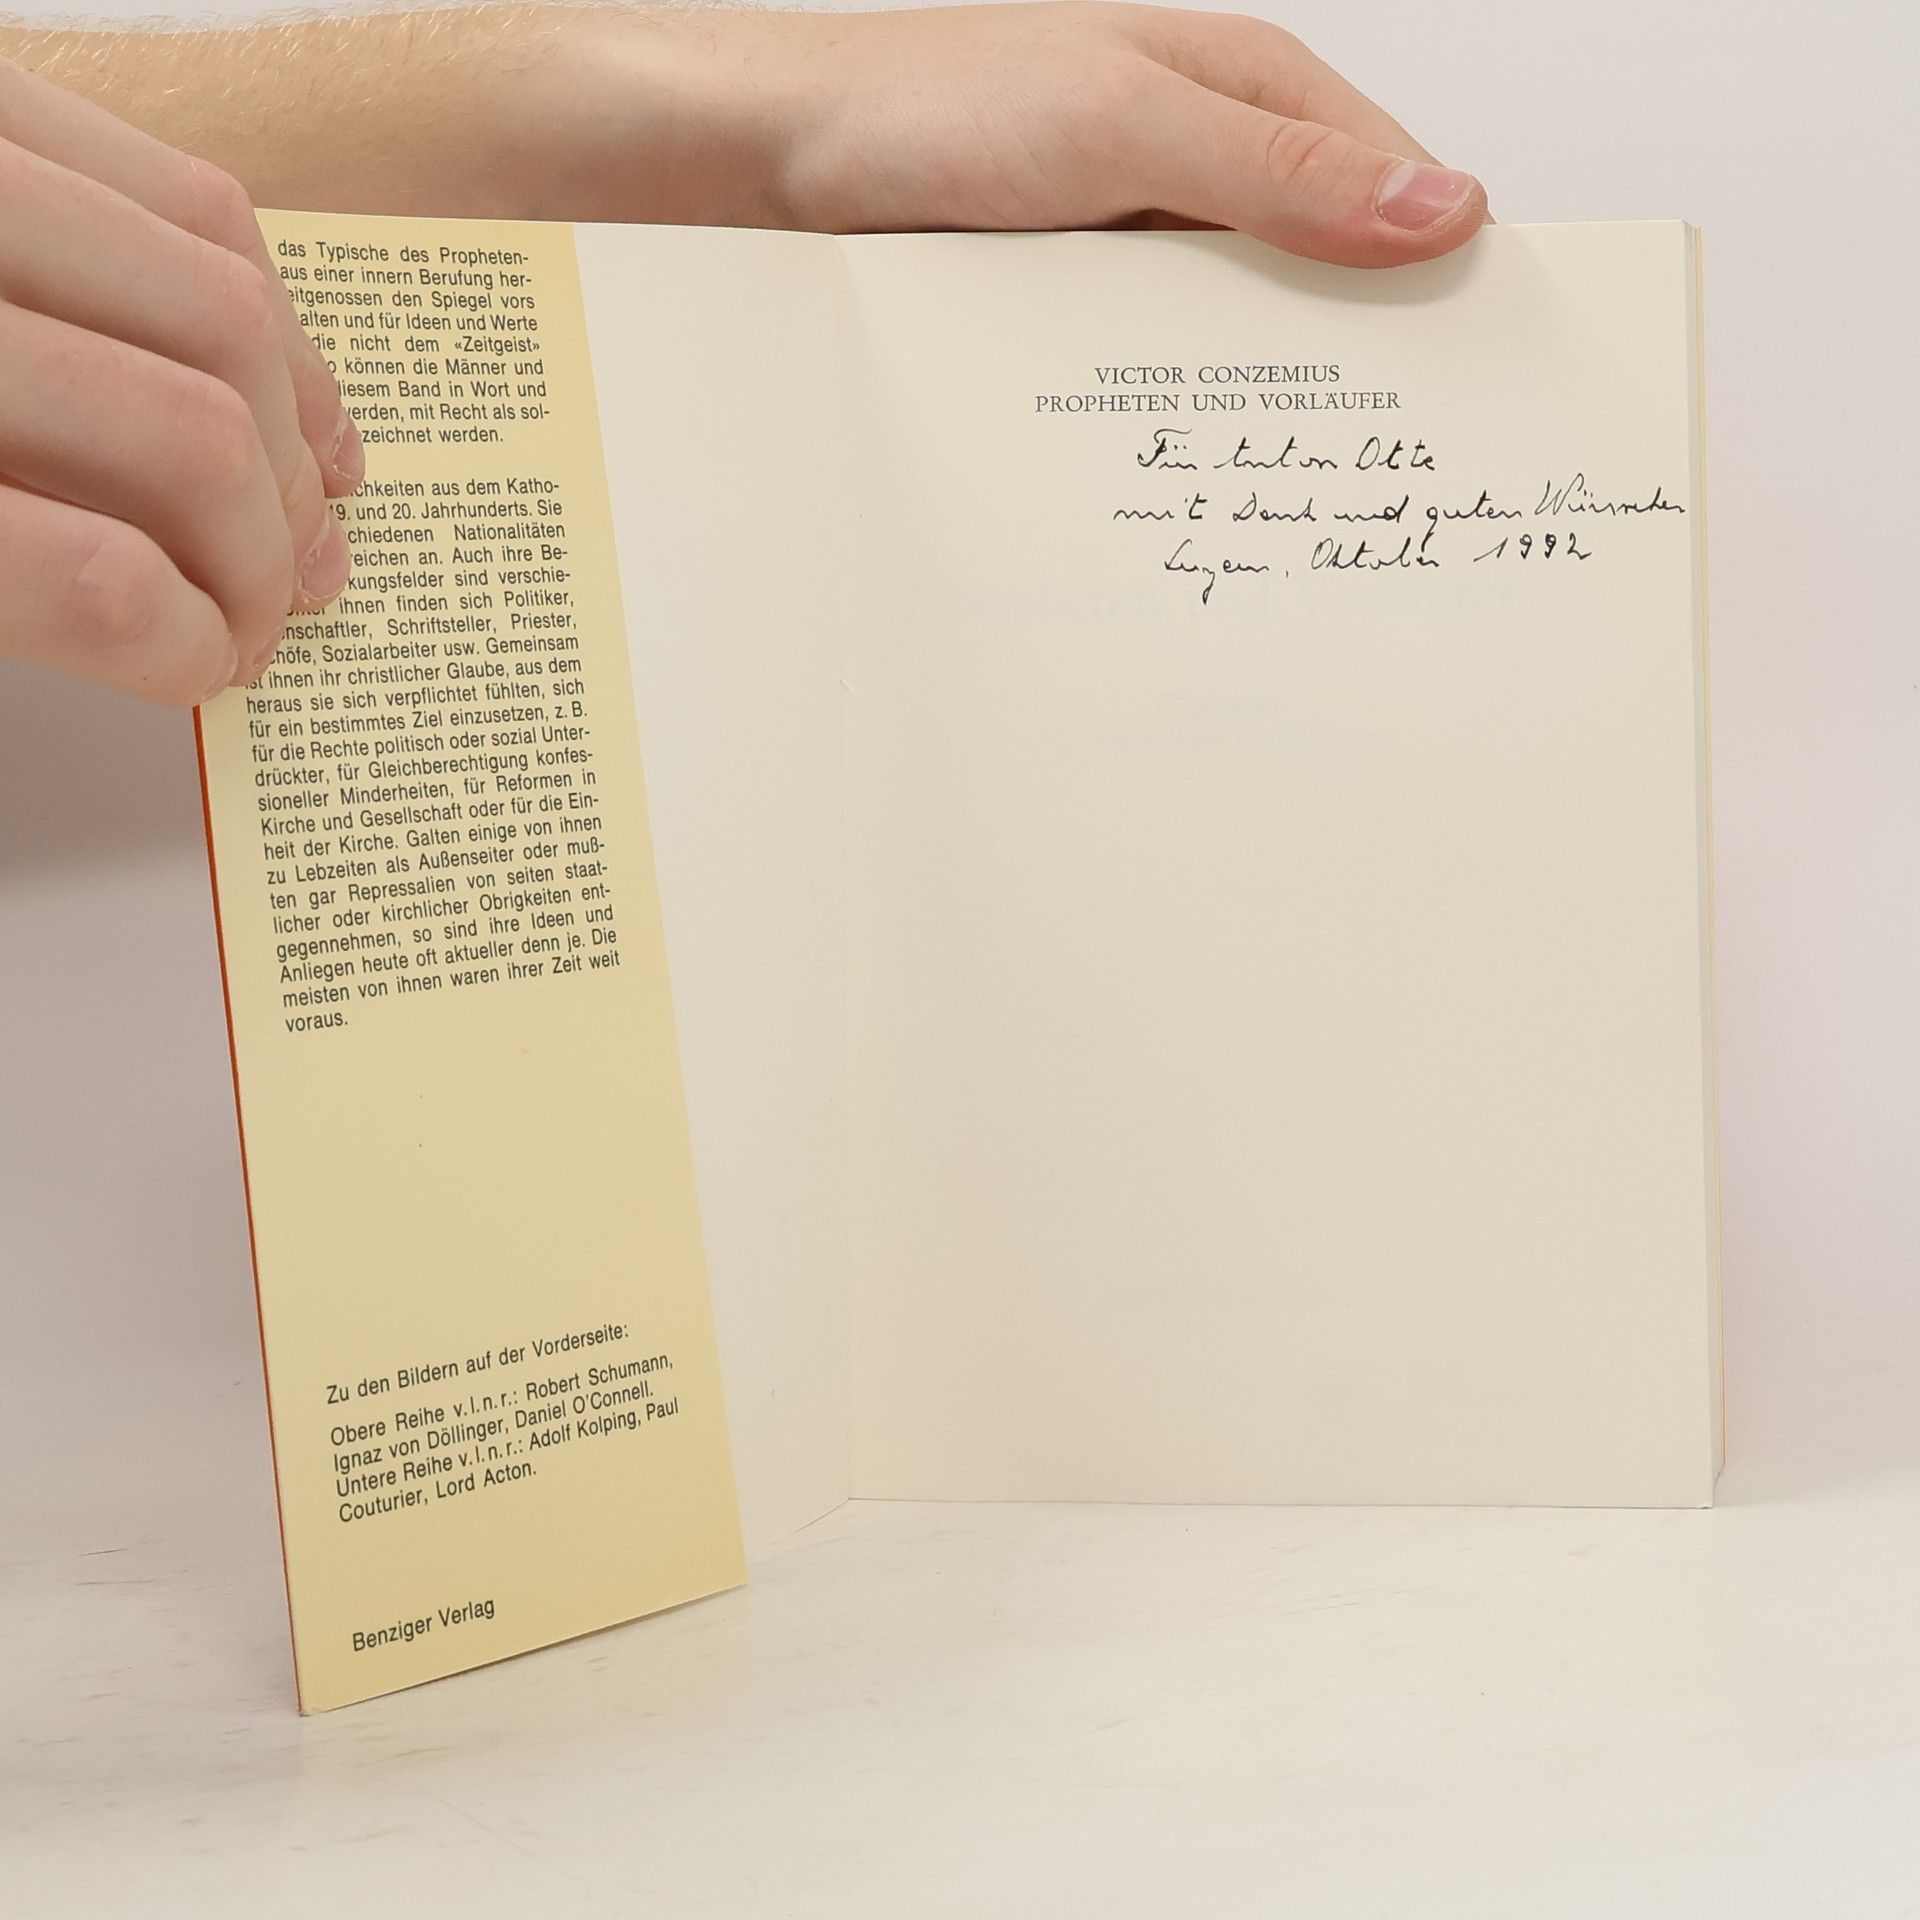 das Typische des Propheten-
aus einer innern Berufung her-
eitgenossen den Spiegel vors
alten und für Ideen und Werte
die nicht dem «Zeitgeist»
o können die Männer und
diesem Band in Wort und
werden, mit Recht als sol-
zeichnet werden.
ichkeiten aus dem Katho-
19. und 20. Jahrhunderts. Sie
schiedenen Nationalitäten
reichen an. Auch ihre Be-
kungsfelder sind verschie-
ihnen finden sich Politiker,
enschaftler, Schriftsteller, Priester,
chöfe, Sozialarbeiter usw. Gemeinsam
ist ihnen ihr christlicher Glaube, aus dem
heraus sie sich verpflichtet fühlten, sich
für ein bestimmtes Ziel einzusetzen, z. B.
für die Rechte politisch oder sozial Unter-
drückter, für Gleichberechtigung konfes-
sioneller Minderheiten, für Reformen in
Kirche und Gesellschaft oder für die Ein-
heit der Kirche. Galten einige von ihnen
zu Lebzeiten als Außenseiter oder muß-
ten gar Repressalien von seiten staat-
licher oder kirchlicher Obrigkeiten ent-
gegennehmen, so sind ihre Ideen und
Anliegen heute oft aktueller denn je. Die
meisten von ihnen waren ihrer Zeit weit
voraus.
Zu den Bildern auf der Vorderseite:
Obere Reihe v.l.n.r.: Robert Schumann,
Ignaz von Döllinger, Daniel O'Connell.
Untere Reihe v.l.n.r.: Adolf Kolping, Paul
Couturier, Lord Acton.
Benziger Verlag
VICTOR CONZEMIUS
PROPHETEN UND VORLÄUFER
Für Anton Otte
mit Dank und guten Wünschen
Luzern, Oktober 1992